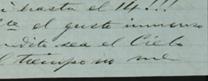 hasta el 14!!!
el gusto inmenso
sea el Cielo
tiempo no me